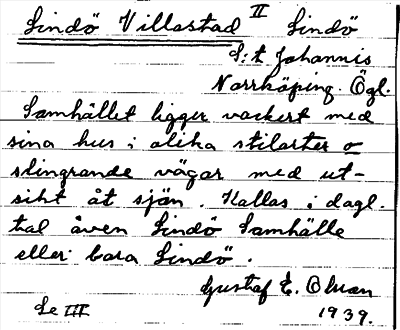 Lindö Villastad II Lindö
S:t Johannis
Norrköping. Ögl.
Samhället ligger vackert med
sina hus i olika stilarter o
slingrande vägar med ut-
sikt åt sjön. Kallas i dagl.
tal även Lindö Samhälle
eller bara Lindö.
Gustaf E. Olsson
Se III 1939.